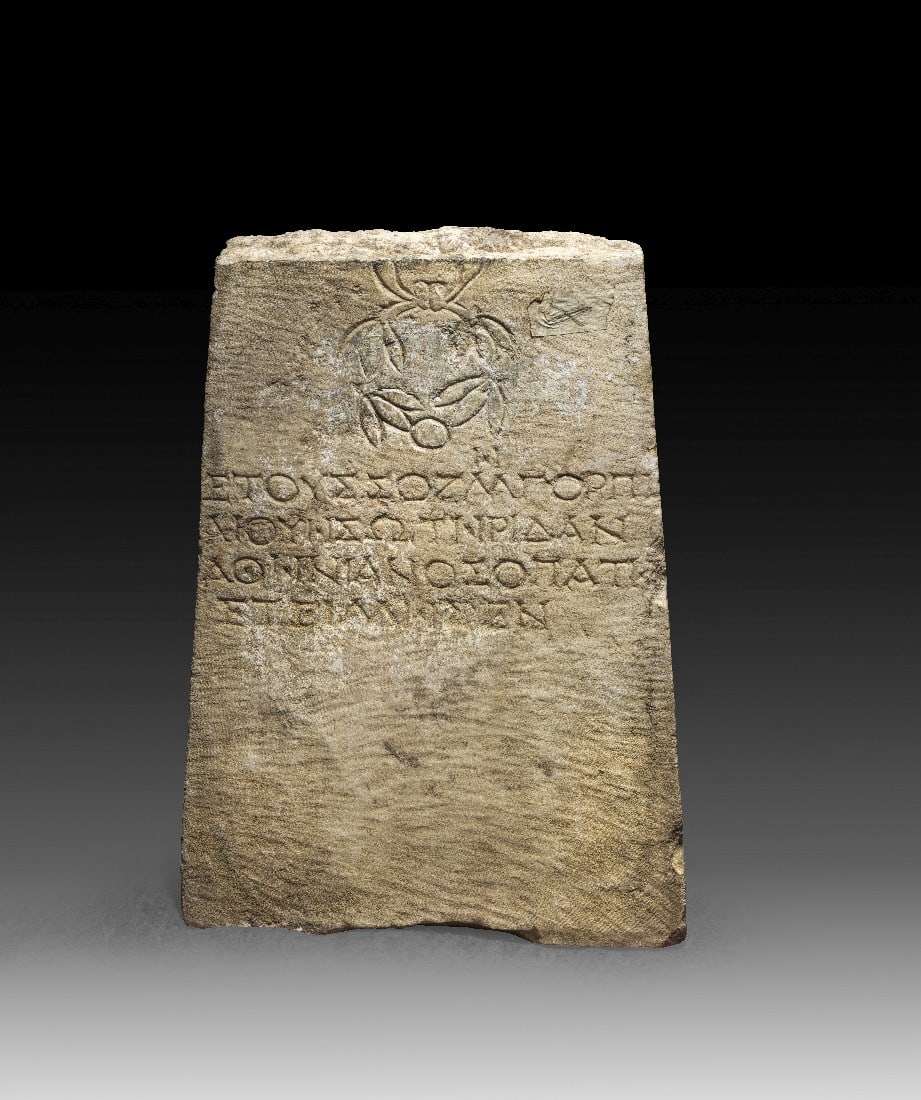 ΕΤΟΥΣ ΣΟΖ Μ ΓΟΡΠΙ
ΑΙΟΥ Η ΣΩΤΗΡΙΔΑΝ
ΑΘΗΝΙΑΝΟΣ Ο ΠΑΤΗΡ
ΕΤΕΙΜΗΣΕΝ